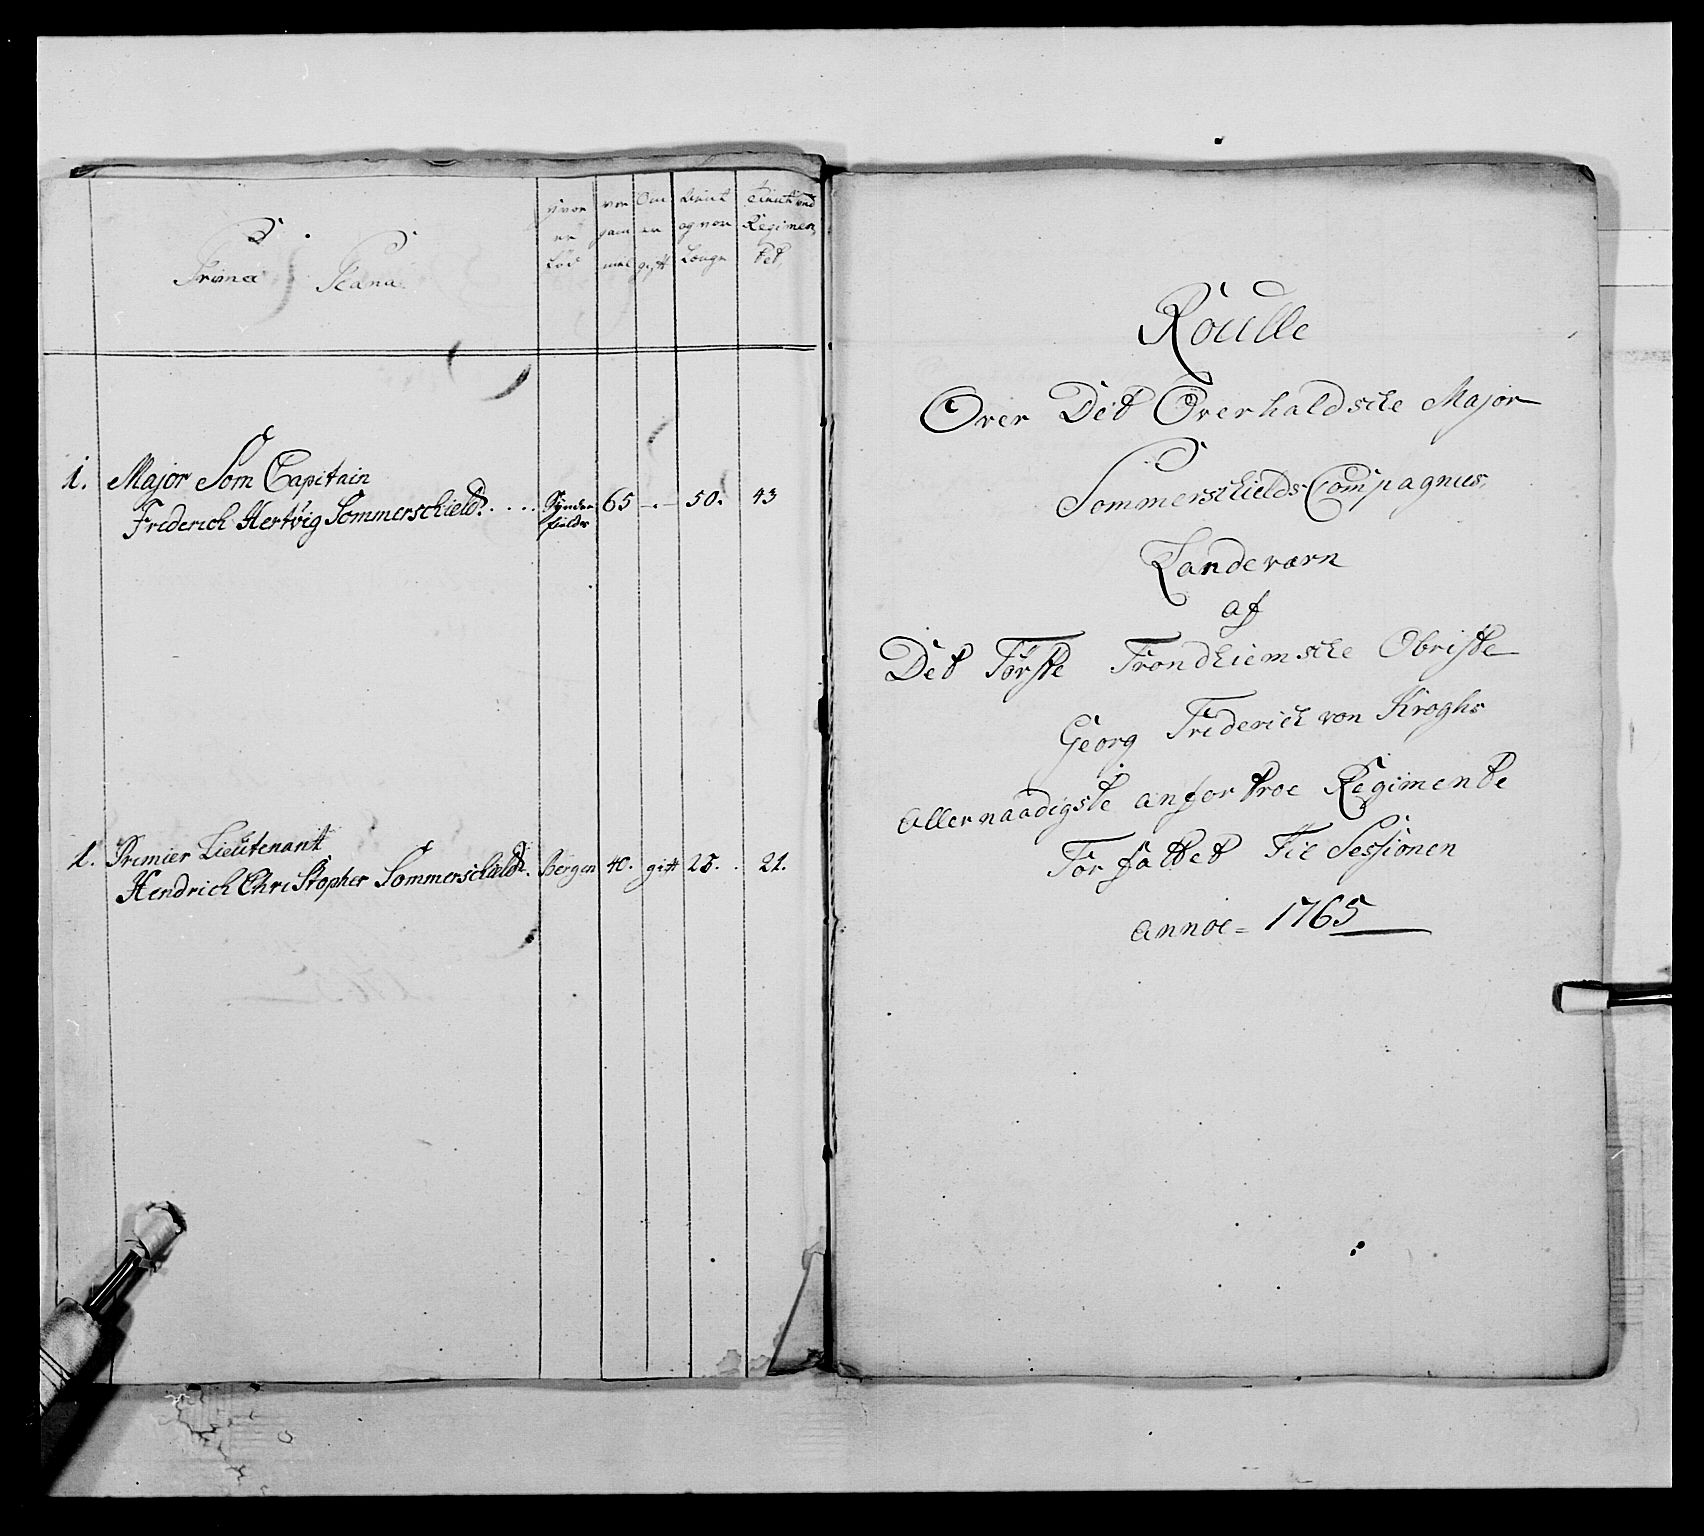 Prima Plana
hvor er Föd
vor gam mel
Om er gift
Tient og vor Længe
Tient ved Regimen, tet,
1. Major Som Capitain
Friderich Hertvig Sommerschield. . . . . Synden fields 65 — . — 50. 43
1. Premier Lieutenant
Hendrich Christopher Sommerschield. Bergen 40. gift 25. . 21.
Roulle
Over Det Overhaldsche Major
Sommerschields Compagnies,
Landeværn
af
Det Første Trondhiemsche Obriste
Georg Friderich von Kroghs
allernaadigste anfortroe Regimente
Forfattet Til Sessionen
annoe = 1765